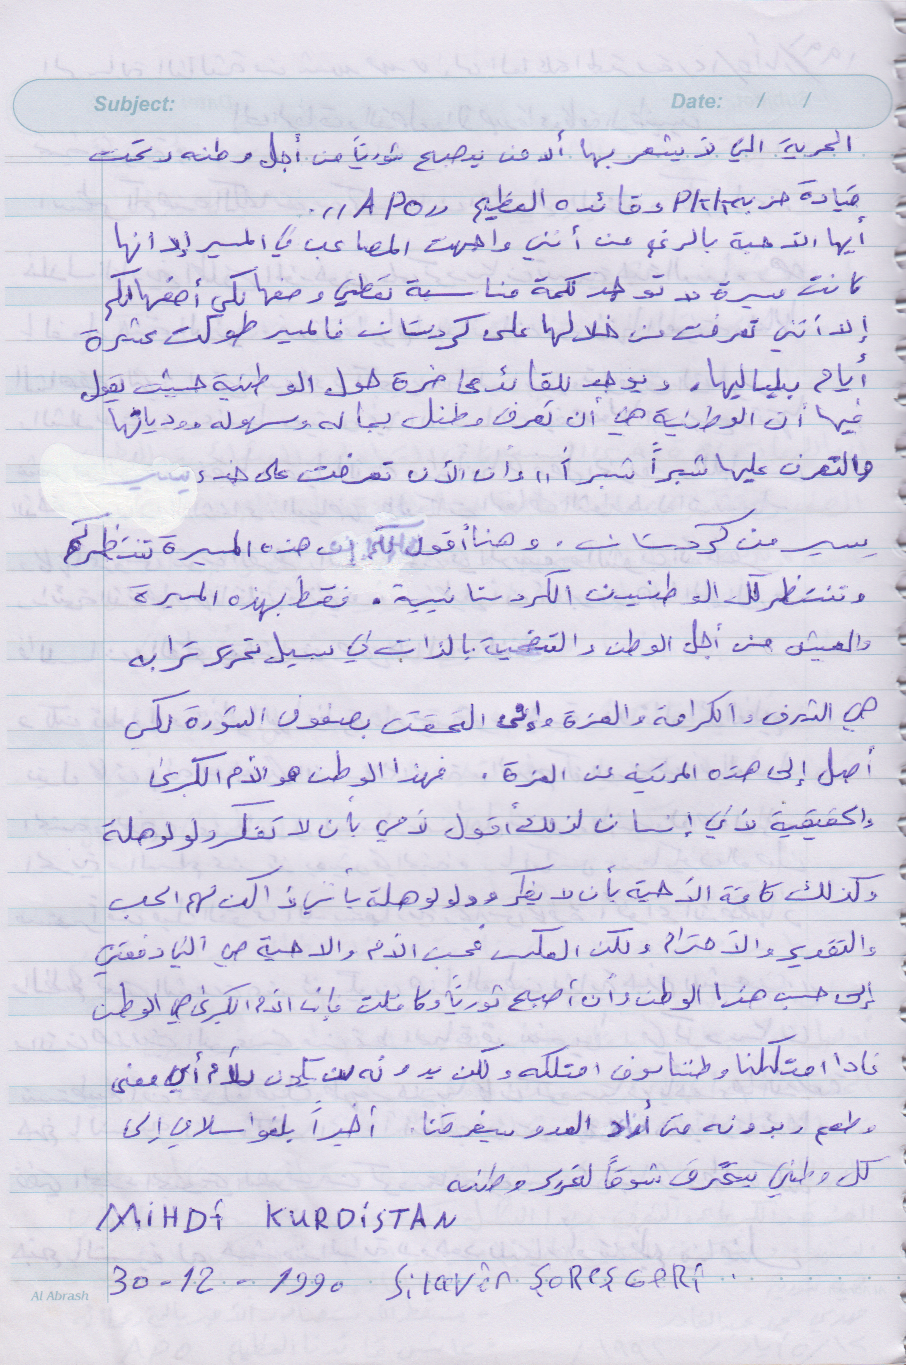 Subject: Date: / /
الحرية التي لا يشعر بها ألا من يصبح ثورياً من أجل وطنه وتحت
قيادة حزبه PKK وقائده العظيم ,, APO ,,.
أيها الأحبة بالرغم من أنني واجهت المصاعب في المسير إلا أنها
كانت مسيرة لا توجد كلمة مناسبة تعطي وصفها لكي أصفها لكم
إلا أنني تعرفت من خلالها على كردستان فالمسير طولت عشرة
أيام بلياليها، ويوجد للقائد محاضرة حول الوطنية حيث يقول
فيها أن الوطنية هي أن تعرف وطنك بجباله وسهوله ووديانها
والتعرف عليها شبراً شبراً ,, وأن الآن تعرفت على جزء
يسير من كردستان. وهنا أقول لكم هذه المسيرة تنتظركم
وتنتظر كل الوطنيين الكردستانيين. فقط بهذه المسيرة
والعيش من أجل الوطن والتضحية بالذات في سبيل تحرير ترابه
هي الشرف والكرامة والعزة وإنني التحقت بصفوف الثورة لكي
أصل إلى هذه المرتبة من العزة. فهذا الوطن هو الأم الكبرى
والحقيقية لأي إنسان لذلك أقول لأمي بأن لا تفكر ولو لوهلة
وكذلك كافة الأحبة بأن لا يفكروا ولو لوهلة بأنني لا أكن لهم الحب
والتقدير والاحترام ولكن العكس فحب الأم والاحبة هي التي دفعتني
إلى حب هذا الوطن وأن أصبح ثورياً وكما قلت فإن الأم الكبرى هي الوطن
فاذا امتلكنا وطننا سوف امتلكه ولكن بدونه لن يكون للأم أي معنى
وطعم وبدونه متى أراد العدو سيفرقنا. أخيراً بلغوا سلامي إلى
كل وطني يحترق شوقاً لتحرير وطنه
MiHDİ KURDİSTAN
30-12-1990 Silavên ŞOREŞGERİ
Al Abrash